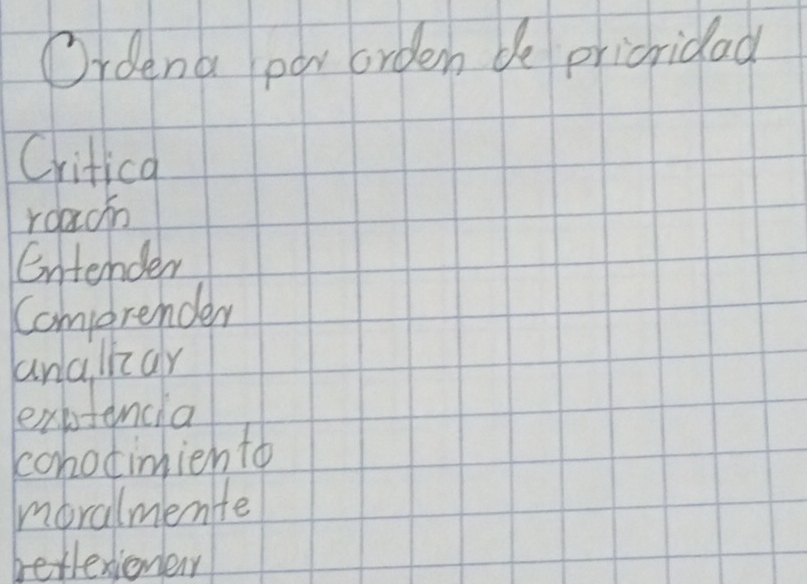 Ordena por orden de prioridad
Critica
razon
Entender
Comprender
analizar
existencia
conocimiento
moralmente
reflexionar